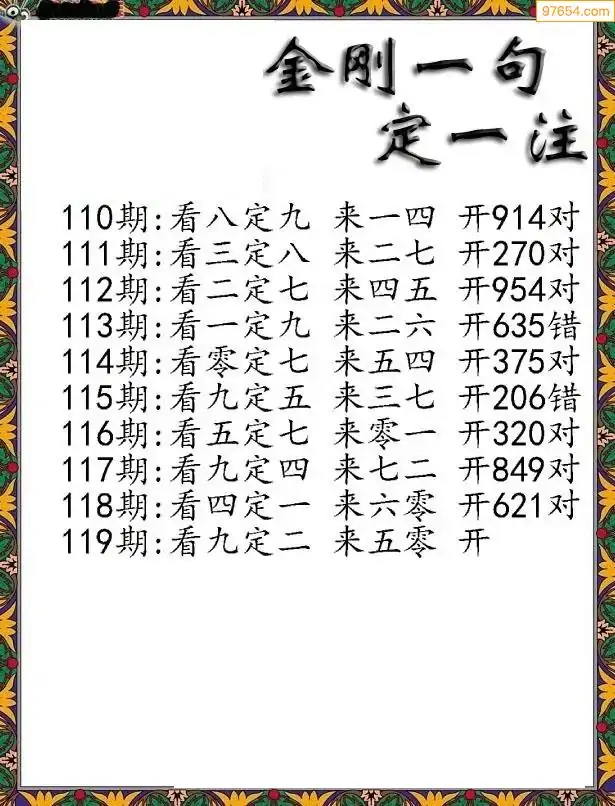 97654.com
金刚一句
定一注
110期:看八定九 来一四 开914对
111期:看三定八 来二七 开270对
112期:看二定七 来四五 开954对
113期:看一定九 来二六 开635错
114期:看零定七 来五四 开375对
115期:看九定五 来三七 开206错
116期:看五定七 来零一 开320对
117期:看九定四 来七二 开849对
118期:看四定一 来六零 开621对
119期:看九定二 来五零 开